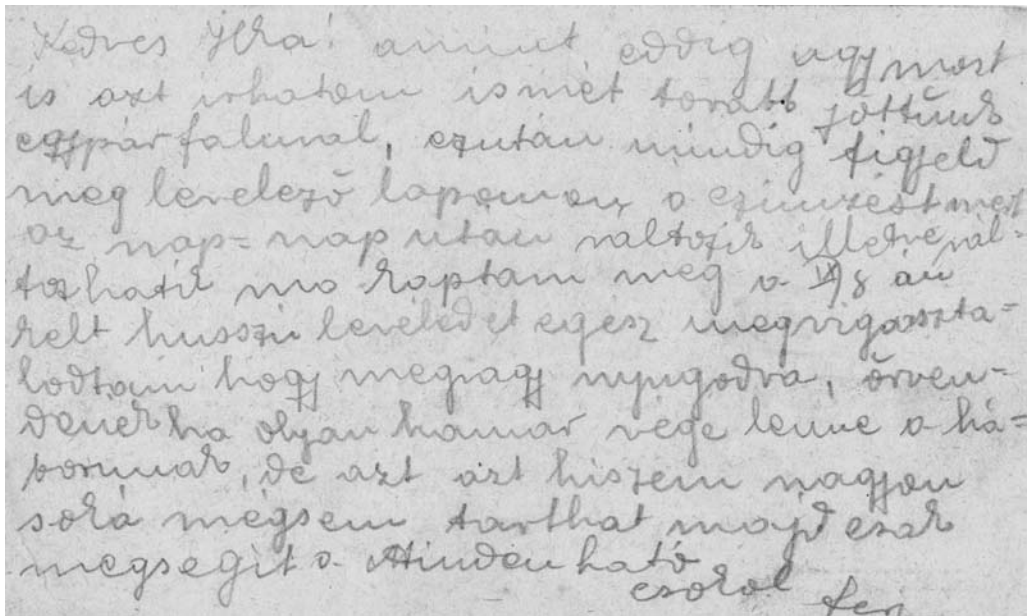 Kedves Ilka! amint eddig ugy most
is azt irhatom ismét tovább jöttünk
egypár faluval, ezután mindig figjeld
meg levelező lapomon a czimzést mert
az nap-nap után valtozik illetve vál-
tozhatik ma kaptam meg a 8 án
kelt husszu leveledet egész megvigaszta-
lodtam hogy megvagy nyugodva, örven-
denék ha olyan hamar vége lenne a há-
borunak, de azt azt hiszem nagyon
soká mégsem tarthat majd csak
megsegit a Mindenható
csokol Feri